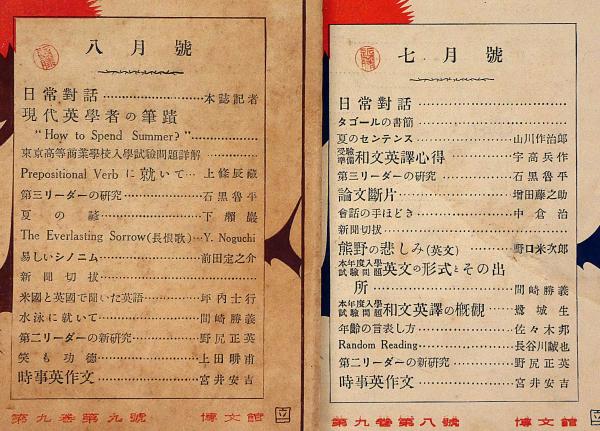 八月號
日常對話 本誌記者
現代英學者の筆蹟
"How to Spend Summer?"
東京高等商業學校入學試驗問題詳解
Prepositional Verb に就いて 上條辰藏
第三リーダーの研究 石黑魯平
夏の諺 下瀨巖
The Everlasting Sorrow (長恨歌) Y. Noguchi
易しいシノニム 前田定之介
新聞切拔
米國と英國で聞いた英語 坪內士行
水泳に就いて 間崎勝義
第二リーダーの新研究 野尻正英
笑も功德 上田畊甫
時事英作文 宮井安吉
第九卷第九號 博文館
七月號
日常對話
タゴールの書簡
夏のセンテンス 山川作治郎
受驗準備 和文英譯心得 宇高兵作
第三リーダーの研究 石黑魯平
論文斷片 增田藤之助
會話の手ほどき 中倉治
新聞切拔
熊野の悲しみ(英文) 野口米次郎
本年度入學試驗問題 英文の形式とその出
所 間崎勝義
本年度入學試驗問題 和文英譯の概觀 鷺城生
年齡の言表し方 佐々木邦
Random Reading 長谷川誠也
第二リーダーの新研究 野尻正英
時事英作文 宮井安吉
第九卷第八號 博文館